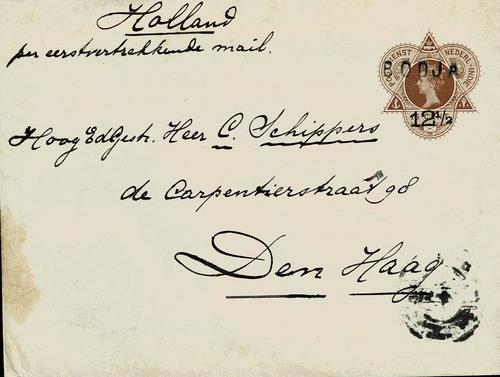 Holland
per eerstvertrekkende mail.
DIENST NEDERL-INDIË
12½
Hoog EdGestr. Heer C. Schippers
de Carpentierstraat 98
Den Haag